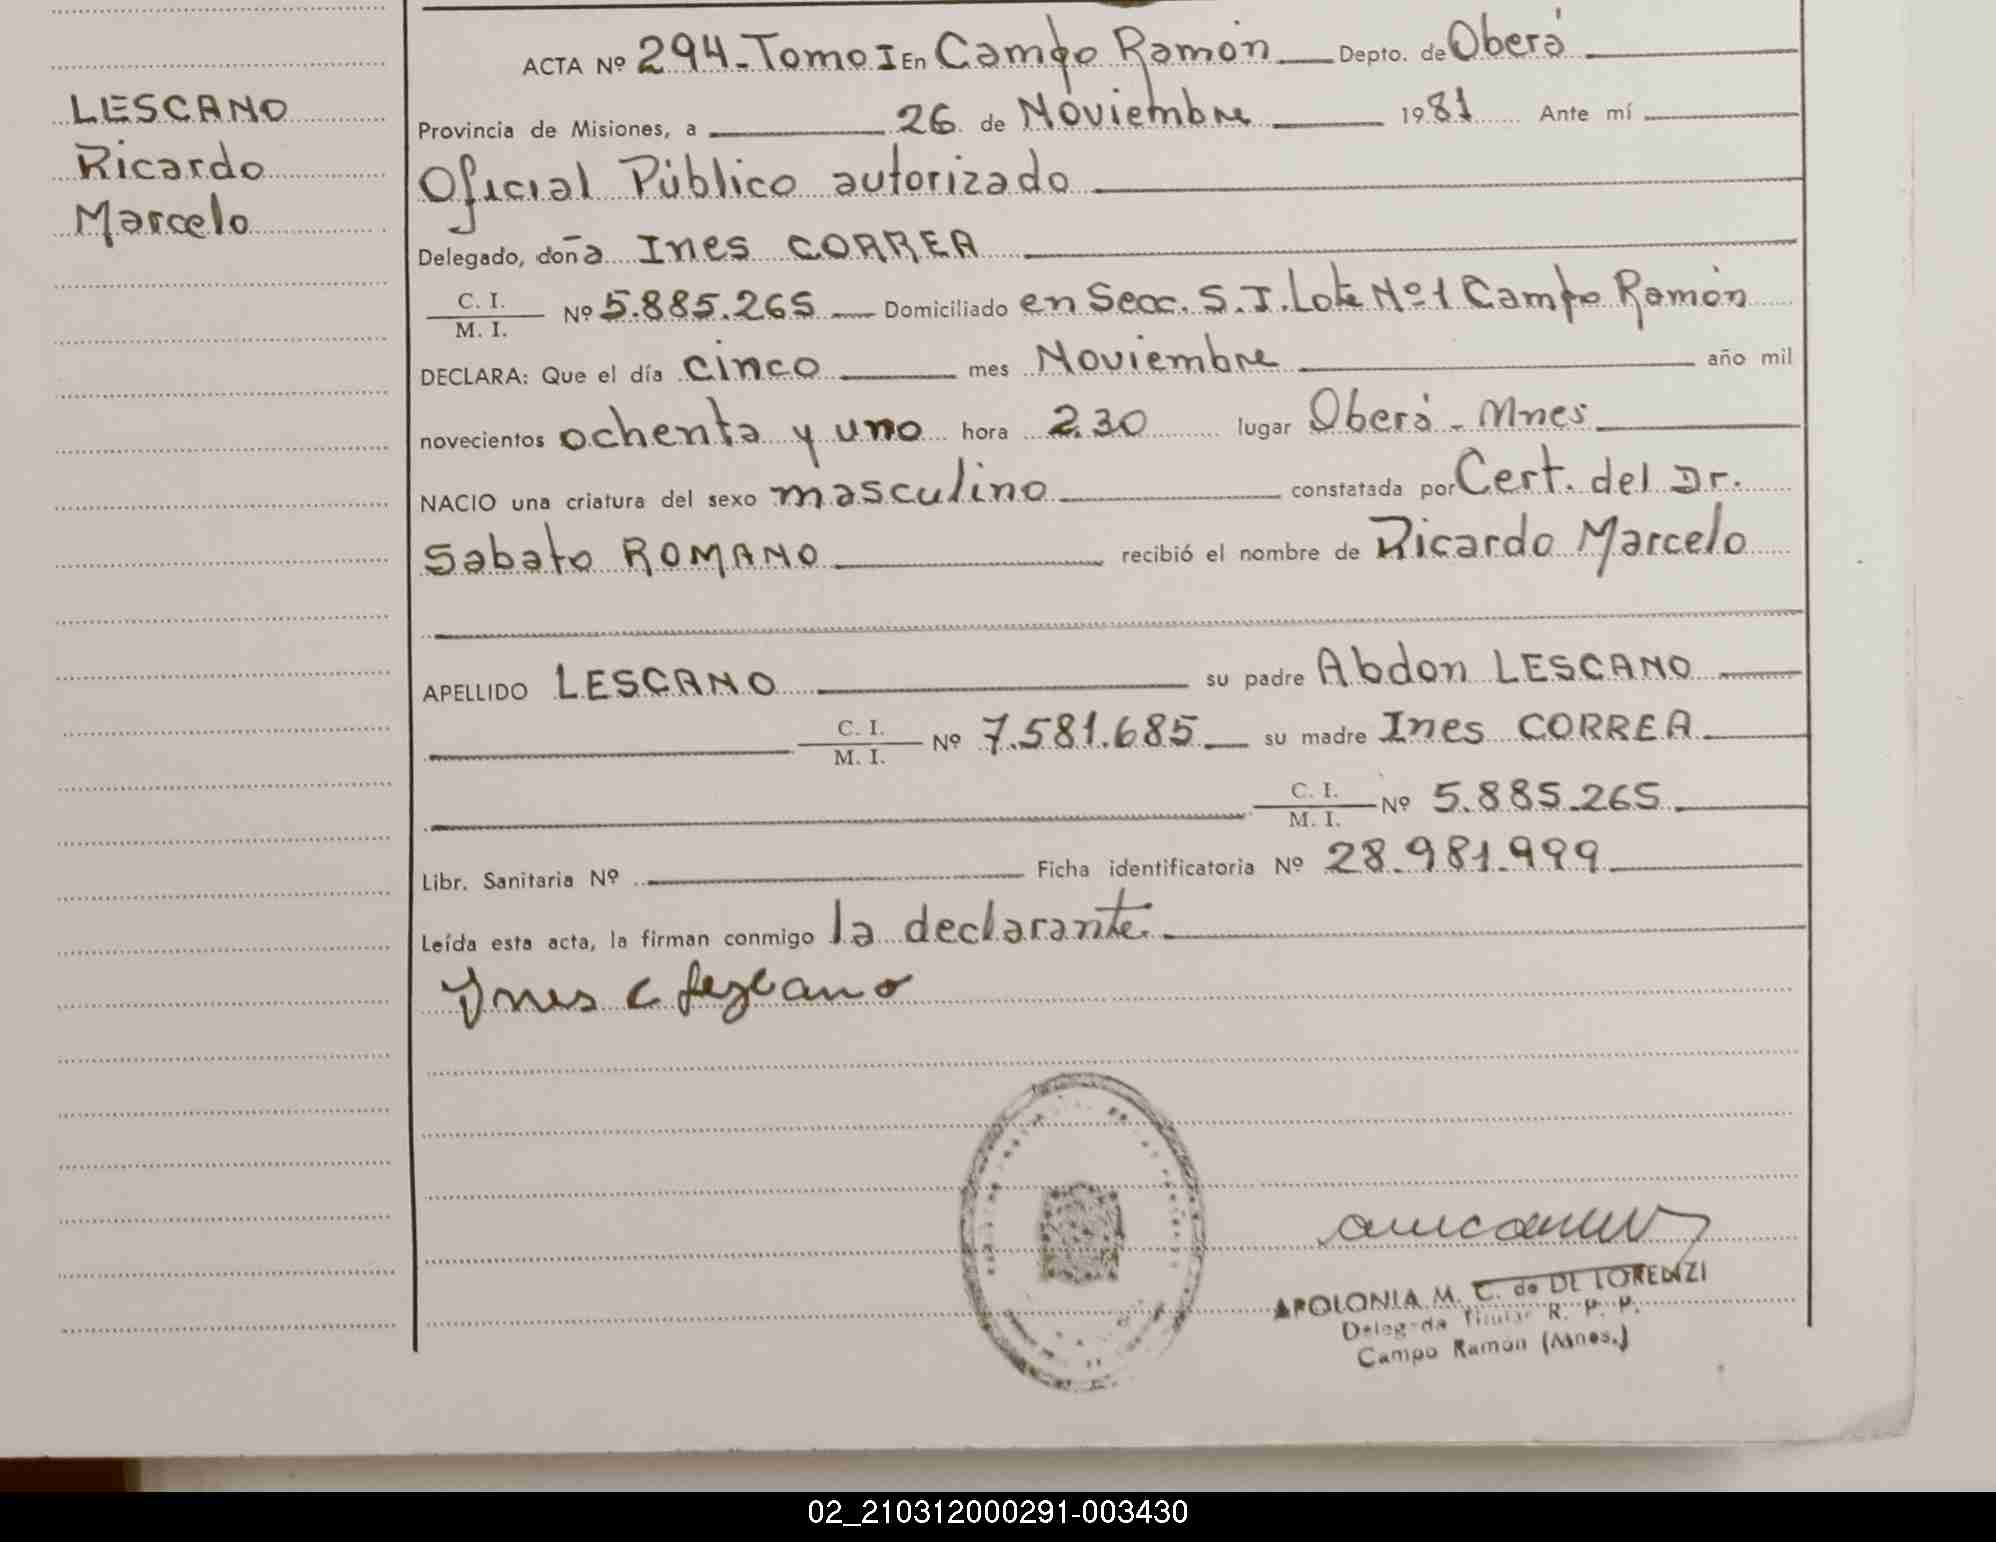 LESCANO
Ricardo
Marcelo
ACTA Nº 294-Tomo I En Campo Ramón Depto. de Oberá
Provincia de Misiones, a 26 de Noviembre 1981 Ante mí
Oficial Público autorizado
Delegado, doña Ines CORREA
C. I.
M. I.
Nº 5.885.265 Domiciliado en Secc. S.I. Lote Nº 1 Campo Ramón
DECLARA: Que el día cinco mes Noviembre año mil
novecientos ochenta y uno hora 2.30 lugar Oberá - Mnes
NACIO una criatura del sexo masculino constatada por Cert. del Dr.
Sabato ROMANO recibió el nombre de Ricardo Marcelo
APELLIDO LESCANO su padre Abdon LESCANO
C. I.
M. I.
Nº 7.581.685 su madre Ines CORREA
C. I.
M. I.
Nº 5.885.265
Libr. Sanitaria Nº Ficha identificatoria Nº 28.981.999
Leída esta acta, la firman conmigo la declarante.
Ynes C Lezcano
APOLONIA M. C. de DE LORENZI
Delegada Titular R. P. P.
Campo Ramon (Mnes.)
02_210312000291-003430